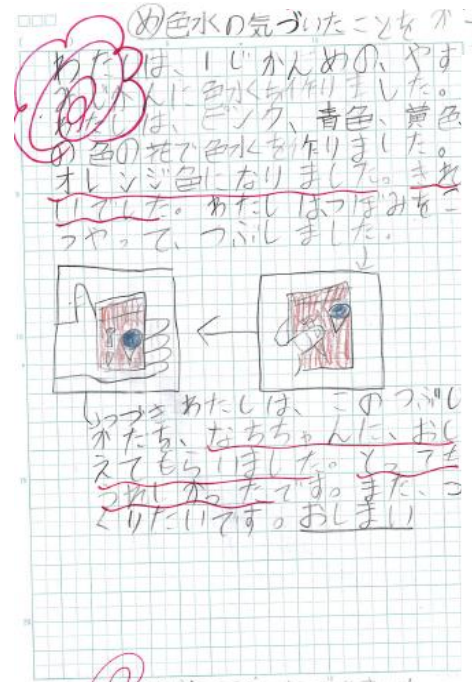 め 色水の気づいたことをかこ
わたしは、1じかんめの、やす
みじかんに色水を作りました。
わたしは、ピンク、青色、黄色
の色の花で色水を作りました。
オレンジ色になりました。きれ
いでした。わたしはつぼみをこ
うやって、つぶしました。
つづき わたしは、このつぶし
かたを、なちちゃんに、おし
えてもらいました。とっても
うれしかったです。また、つ
くりたいです。おしまい